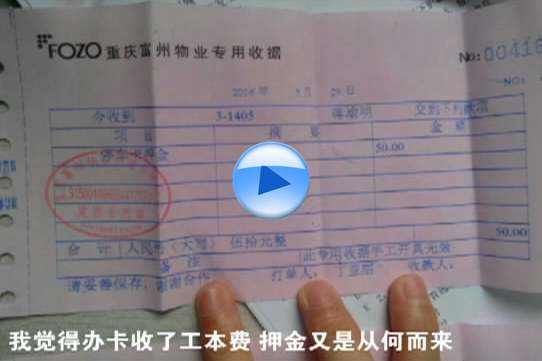 FOZO 重庆富州物业专用收据
№:00416
NO:
29日
今收到 3-1405 交来下列款项
项目 摘要 金额
停车卡押金 50.00
50.00
合计 人民币(大写) 伍拾元整
备注 此专用收据手工开具无效
请妥善保存,谢谢合作 打单人: 收款人:
我觉得办卡收了工本费 押金又是从何而来